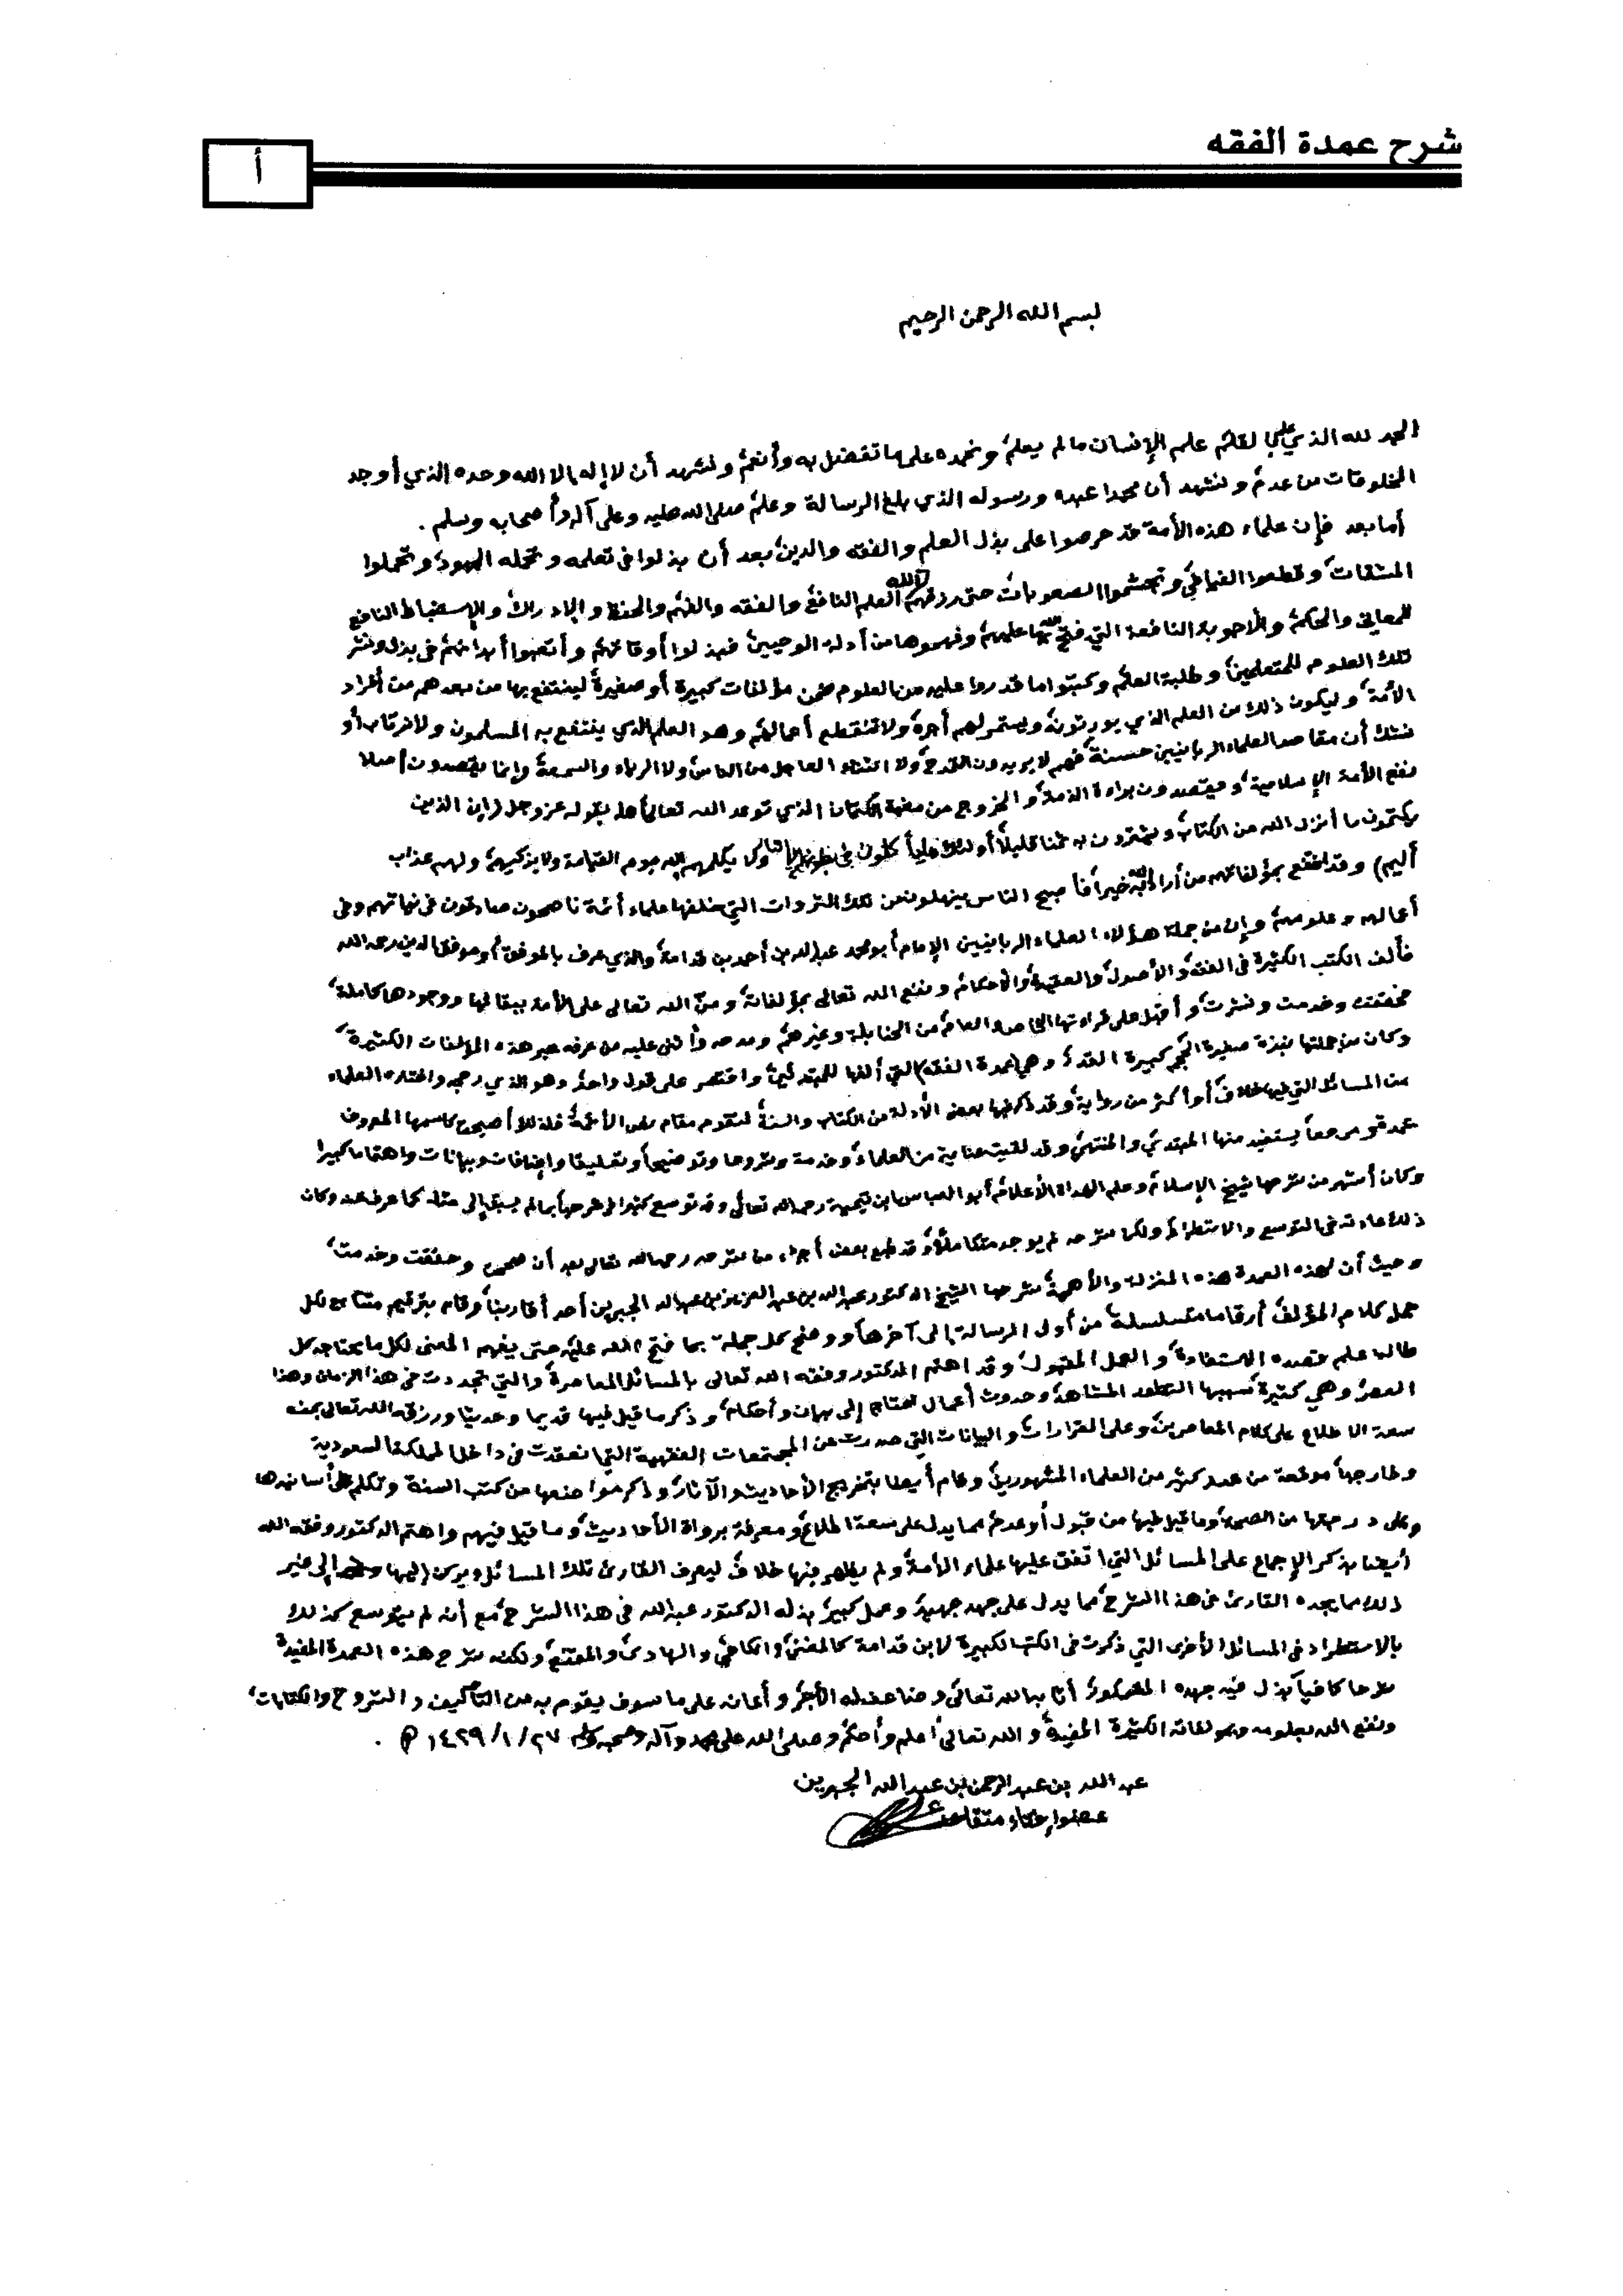 شرح عمدة الفقه
أ
بسم الله الرحمن الرحيم
الحمد لله الذي علم بالقلم علم الإنسان ما لم يعلم، ونحمده على ما تفضل به وأنعم، ونشهد أن لا إله إلا الله وحده الذي أوجد
المخلوقات من عدم، ونشهد أن محمدا عبده ورسوله الذي بلغ الرسالة وعلم صلى الله عليه وعلى آله وأصحابه وسلم.
أما بعد فإن علماء هذه الأمة قد حرصوا على بذل العلم والفقه والدين، بعد أن بذلوا في تعلمه وتحمله الجهود، وتحملوا
المشقات، وقطعوا الفيافي، وتجشموا الصعوبات، حتى رزقهم الله العلم النافع، والفقه والفهم والحفظ والإدراك، والإستنباط النافع
للمعاني والحكم، والأجوبة النافعة التي فتح الله بها عليهم، وفهموها من أدلة الوحيين، فبذلوا أوقاتهم، وأتعبوا أبدانهم في بذل ونشر
تلك العلوم للمتعلمين، وطلبة العلم، وكتبوا ما قدروا عليه من العلوم ضمن مؤلفات كبيرة أو صغيرة، لينتفع بها من بعدهم من أفراد
الأمة، وليكون ذلك من العلم الذي يورثونه، ويستمر لهم أجره، ولا تنقطع أعمالهم، وهو العلم الذي ينتفع به المسلمون ولا نرتاب أو
نشك أن مقاصد العلماء الربانيين حسنة، فهم لا يريدون المدح، ولا الثناء العاجل من الناس، ولا الرياء والسمعة، وإنما يقصدون أصلا
نفع الأمة الإسلامية، ويقصدون براءة الذمة، والخروج من مغبة الكتمان الذي توعد الله تعالى أهله بقوله عز وجل (إن الذين
يكتمون ما أنزل الله من الكتاب ويشترون به ثمنا قليلا، أولئك ما يأكلون في بطونهم إلا النار، ولا يكلمهم الله يوم القيامة ولا يزكيهم، ولهم عذاب
أليم) وقد انتفع بمؤلفاتهم من أراد الله به خيراً، فأصبح الناس ينهلون من تلك الثروات التي خلفها علماء أئمة ناصحون صادقون في نياتهم وفي
أعمالهم وعلومهم، وإن من جملة هؤلاء العلماء الربانيين الإمام أبو محمد عبدالله بن أحمد بن قدامة، والذي عرف بالموفق، وموفق الدين رحمه الله
فألف الكتب الكثيرة في الفقه والأصول، والعقيدة، والأحكام، ونفع الله تعالى بمؤلفاته، ومنّ الله تعالى على الأمة ببقائها ووجودها كاملة،
فحققت وخدمت ونشرت، وأقبل على قراءتها الخاص والعام، من الحنابلة وغيرهم، ومدحه وأثنى عليه من عرفه عبر هذه المؤلفات الكثيرة،
وكان من جملتها نبذة صغيرة الحجم كبيرة القدر، وهي (عمدة الفقه) التي ألفها للمبتدئين، واقتصر على قول واحد، وهو الذي رجحه واختاره العلماء
من المسائل التي فيها خلاف، أو أكثر من رواية، وقد ذكر فيها بعض الأدلة من الكتاب والسنة، لتقوم مقام نص الأئمة، فلذلك أصبح كاسمها المعروف
عمدة ومرجعاً يستفيد منها المبتدئ والمنتهي، وقد لقيت عناية من العلماء، وخدمة وشروحا وتوضيحاً وتعليقا وإضافات وبيانات واهتماما كبيرا
وكان أشهر من شرحها شيخ الإسلام، وعلم الهداة الأعلام، أبو العباس ابن تيمية رحمه الله تعالى، وقد توسع كثيرا في شرحها، بما لم يسبق إلى مثله، كما عرف عنه وكان
ذلك عادته في التوسع والاستطراد، ولكن شرحه لم يوجد متكاملاً، وقد طبع بعض أجزاء من شرحه رحمه الله تعالى بعد أن صححت وحققت وخدمت،
وحيث أن لهذه العمدة هذه المنزلة والأهمية، شرحها الشيخ الدكتور عبدالله بن عبدالعزيز بن عبدالله الجبرين أحد أقاربنا، وقام بترقيم متتابع لكل
جمل كلام المؤلف، أرقاما متسلسلة، من أول الرسالة إلى آخرها، ووضح كل جملة بما فتح الله عليه، حتى يفهم المعنى لكل ما يحتاجه كل
طالب علم قصده الاستفادة، والعمل المقبول، وقد اهتم الدكتور وفقه الله تعالى بالمسائل المعاصرة، والتي تجددت في هذا الزمان وهذا
العصر، وهي كثيرة، سببها التطور المشاهد، وحدوث أعمال تحتاج إلى بيان وأحكام، وذكر ما قيل فيها قديما وحديثا ورزقه الله تعالى بمنه
سعة الاطلاع على كلام المعاصرين، وعلى القرارات، والبيانات التي صدرت عن المجتمعات الفقهية التي انعقدت في داخل المملكة السعودية
وخارجها، موقعة من عدد كثير من العلماء المشهورين، وقام أيضا بتخريج الأحاديث والآثار، وذكر مواضعها من كتب السنة، وتكلم على أسانيدها
وعلى درجتها من الصحة، وما قيل فيها من قبول أو عدمه، مما يدل على سعة اطلاع، ومعرفة برواة الأحاديث، وما قيل فيهم واهتم الدكتور وفقه الله
أيضا بذكر الإجماع على المسائل التي اتفق عليها علماء الأمة، ولم يظهر فيها خلاف، ليعرف القارئ تلك المسائل، ويركن إليها، إلى غير
ذلك مما يجده القارئ في هذا الشرح، مما يدل على جهد جهيد، وعمل كبير، بذله الدكتور عبدالله في هذا الشرح، مع أنه لم يتوسع كذلك
بالاستطراد في المسائل الأخرى التي ذكرت في الكتب الكبيرة لابن قدامة كالمغني، والكافي، والهادي، والمقنع، ولكنه شرح هذه العمدة المفيدة
شرحا كافياً، بذل فيه جهده المشكور، أثابه الله تعالى، وضاعف له الأجر، وأعانه على ما سوف يقوم به من التأليف، والشروح والكتابات،
ونفع الله بعلومه وبمؤلفاته الكثيرة المفيدة، والله تعالى أعلم وأحكم، وصلى الله على محمد وآله وصحبه وسلم ٢٧/ ١/ ١٤٢٩ هـ.
عبد الله بن عبد الرحمن بن عبدالله الجبرين
عضو إفتاء متقاعد